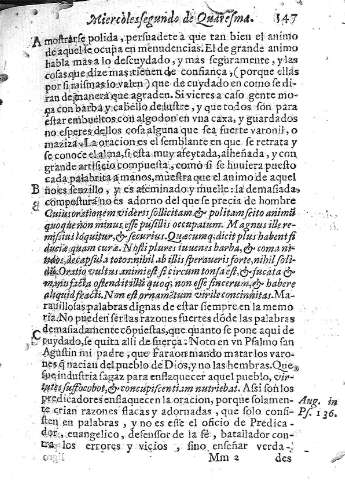 Miercoles segundo de Quaresma. 547
A mostrarse polida, persuadete à que tan bien el animo
de aquel se ocupa en menudencias. El de grande animo
habla mas a lo descuydado, y mas seguramente, y las
cosas que dize mas tienen de confiança, (porque ellas
por si mismas lo valen) que de cuydado en como se di-
ran de manera que agraden. Si vieres a caso gente mo-
ça con barba y cabello de lustre, y que todos son para
estar embueltos con algodon en vna caxa, y guardados
no esperes dellos cosa alguna que sea fuerte varonil, o
maziza. La oracion es el semblante en que se retrata y
se conoce el alma, si està muy afeytada, aliñada, y con
grande artificio compuesta, como si se huuiera puesto
cada palabrica a manos, muestra que el animo de aquel
B no es senzillo, y es afeminado y muelle: la demasiada
compostura no es adorno del que se precia de hombre
Cuius orationem videris sollicitam, & politam scito animũ
quoque non minus esse pusillis occupatum. Magnus ille re-
missius loquitur, & securius. Quæcumq; dicit plus habent fi
duciæ quam curæ. Nosti plures iuuenes barba, & coma ni-
tidos, de capsula totos: nihil ab illis speraueris forte, nihil soli-
dũ. Oratio vultus animi est si circum tonsa est, & fucata &
manu facta ostendit illũ quoq; non esse sincerum, & habere
aliquid fracti. Non est ornamẽtum virile concinnitas. Ma-
rauillosas palabras dignas de estar siempre en la memo-
ria. No pueden ser las razones fuertes dõde las palabras
C demasiadamente cõpuestas, que quanto se pone aqui de
cuydado, se quita alli de fuerça: Noto en vn Psalmo san
Agustin mi padre, que Faraon mandò matar los varo-
nes q̃ nacian del pueblo de Dios, y no las hembras. Que
fue industria sagaz para enflaquecer aquel pueblo, vir-
tutes suffocabat, & concupiscentiam nutriebat. Assi son los
predicadores enflaquecen la oracion, porque solamen-
te crian razones flacas y adornadas, que solo consis-
ten en palabras, y no es este el oficio de Predica-
dor, euangelico, defensor de la fè, batallador con-
tra los errores y vicios, sino enseñar verda-
Aug. in
Ps. 136.
Mm 2 des